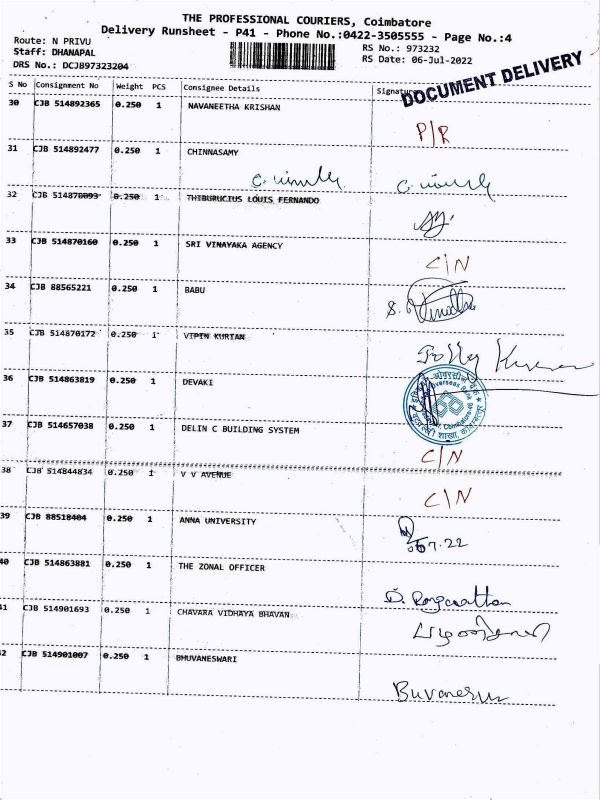 THE PROFESSIONAL COURIERS, Coimbatore
Delivery Runsheet - P41 - Phone No.:0422-3505555 - Page No.:4
Route: N PRIVU
RS No.: 973232
Staff: DHANAPAL
RS Date: 06-Jul-2022
DRS No.: DCJB97323204
DOCUMENT DELIVERY
S No Consignment No Weight PCS Consignee Details Signature
30 CJB 514892365 0.250 1 NAVANEETHA KRISHAN
P/R
31 CJB 514892477 0.250 1 CHINNASAMY
32 CJB 514870093 0.250 1 THIBURUCIUS LOUIS FERNANDO
33 CJB 514870160 0.250 1 SRI VINAYAKA AGENCY
C/N
34 CJB 88565221 0.250 1 BABU
35 CJB 514870172 0.250 1 VIPIN KURIAN
36 CJB 514863819 0.250 1 DEVAKI
37 CJB 514657038 0.250 1 DELIN C BUILDING SYSTEM
C/N
38 CJB 514844834 0.250 1 V V AVENUE
C/N
39 CJB 88518404 0.250 1 ANNA UNIVERSITY
40 CJB 514863881 0.250 1 THE ZONAL OFFICER
41 CJB 514901693 0.250 1 CHAVARA VIDHAYA BHAVAN
42 CJB 514901007 0.250 1 BHUVANESWARI